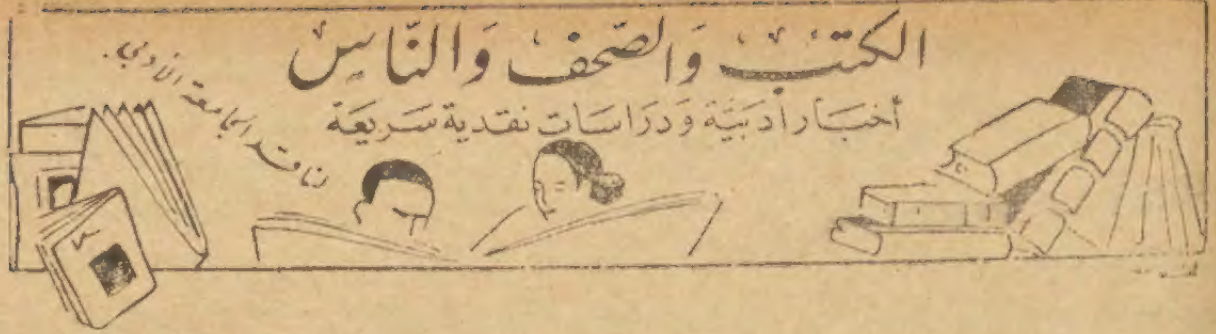 الكتب والصحف والناس
أخبار أدبية ودراسات نقدية سريعة
لناقد الجامعة الأدبي.